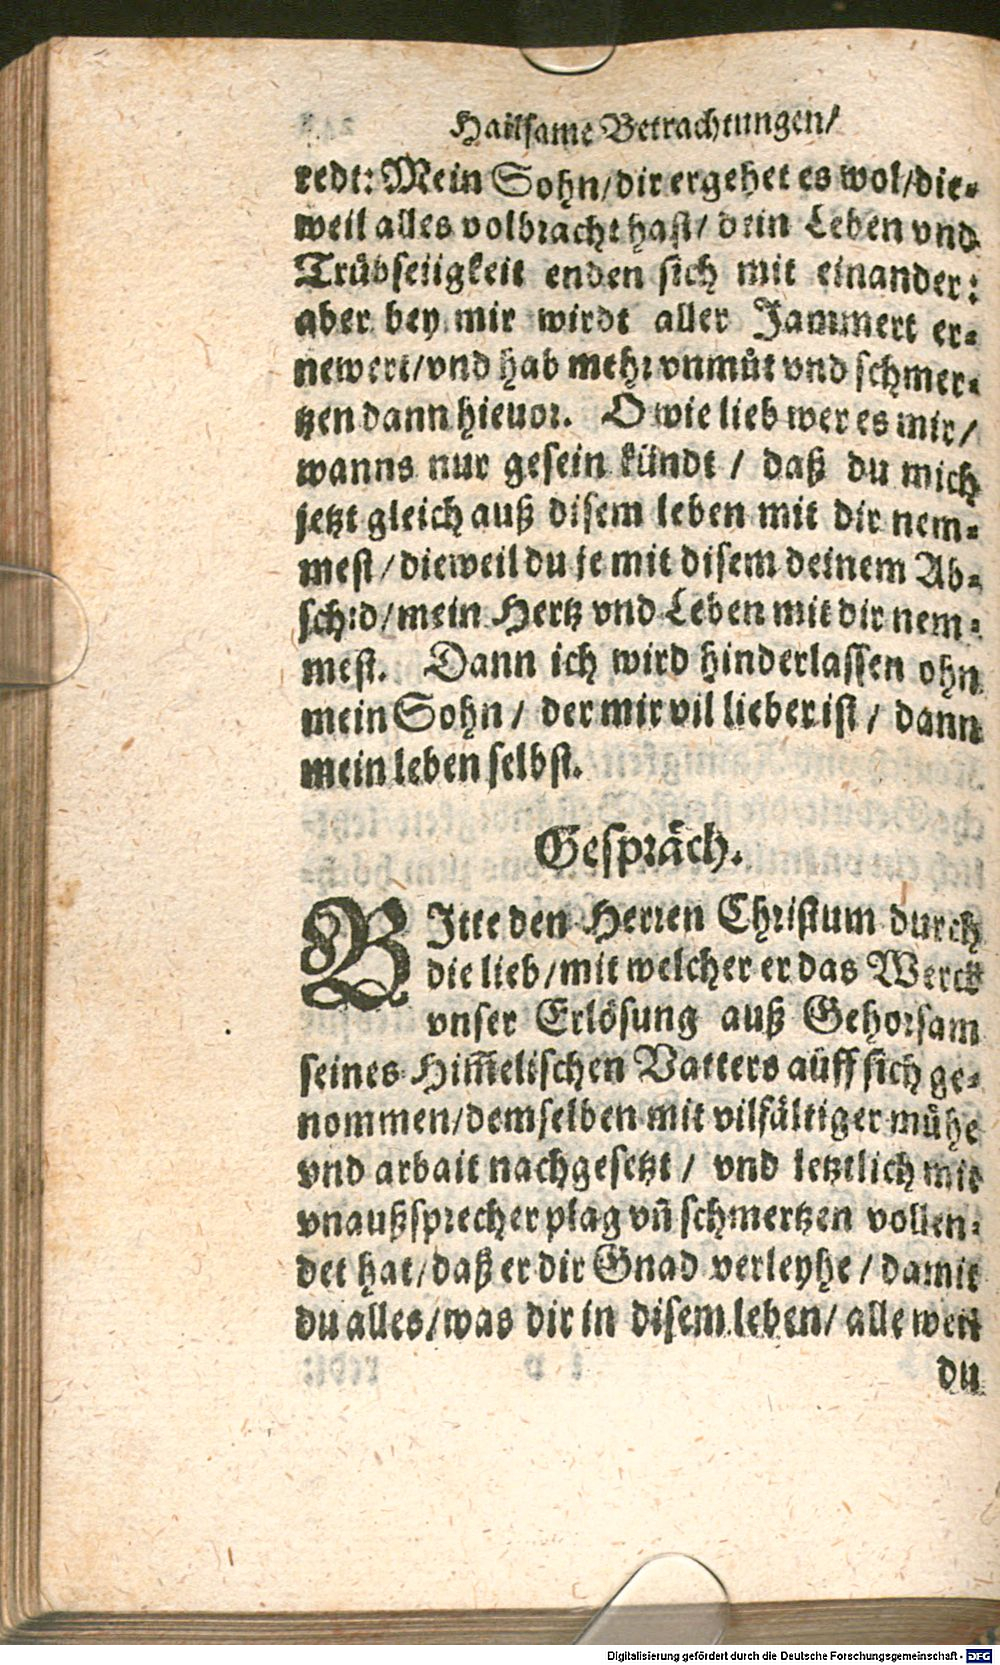 Hailsame Betrachtungen/
redt: Mein Sohn/dir ergehet es wol/die-
weil alles volbracht hast/ dein Leben vnd
Trübseligkeit enden sich mit einander:
aber bey mir wirdt aller Jammert er-
newert/vnd hab mehr vnmůt vnd schmer-
tzen dann hieuor. O wie lieb wer es mir/
wanns nur gesein kündt / daß du mich
jetzt gleich auß disem leben mit dir nem-
mest/dieweil du je mit disem deinem Ab-
schid/mein Hertz vnd Leben mit dir nem-
mest. Dann ich wird hinderlassen ohn
mein Sohn/ der mir vil lieber ist/ dann
mein leben selbst.
Gespräch.
BItte den Herren Christum durch
die lieb/mit welcher er das Werck
vnser Erlösung auß Gehorsam
seines Him̃elischen Vatters aüff sich ge-
nommen/demselben mit vilfältiger mühe
vnd arbait nachgesetzt/ vnd letztlich mit
vnaußsprecher plag vñ schmertzen vollen-
det hat/daß er dir Gnad verleyhe/damit
du alles/was dir in disem leben/ alle weil
du
Digitalisierung gefördert durch die Deutsche Forschungsgemeinschaft - DFG